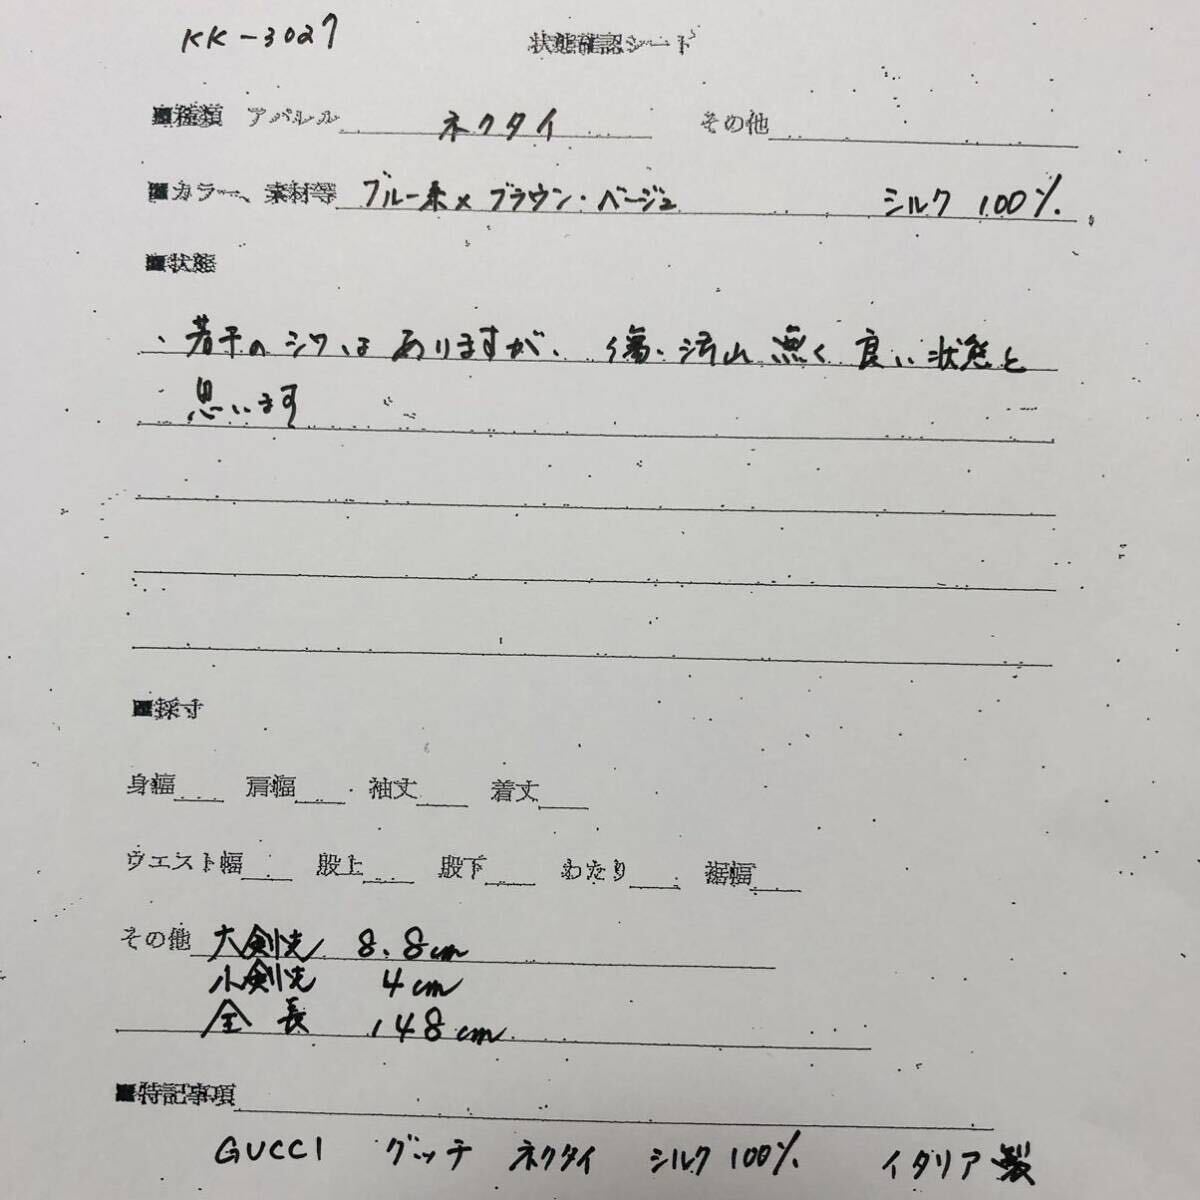 KK-3027
状態確認シート
■種類 アパレル ネクタイ その他
■カラー、素材等 ブルー系×ブラウン・ベージュ シルク 100%
■状態
・若干のシワはありますが、傷・汚れ無く良い状態と
思います
■採寸
身幅 肩幅 袖丈 着丈
ウエスト幅 股上 股下 わたり 裾幅
その他 大剣先 8.8cm
小剣先 4cm
全長 148cm
■特記事項
GUCCI グッチ ネクタイ シルク100% イタリア製